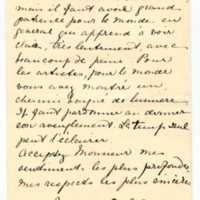 mais il faut avoir grand
patience pour le monde en
general qui apprend a voir
clair, très lentement, avec
beaucoup de peine. Pour
les artistes, pour le monde
vous avez montré un
chemin baigné de lumière
Il faut pardonner au dernier
son aveuglement. Le temps seul
peut l'éclairer
Acceptez Monsieur mes
sentiments les plus profonds
mes respects les plus sincères